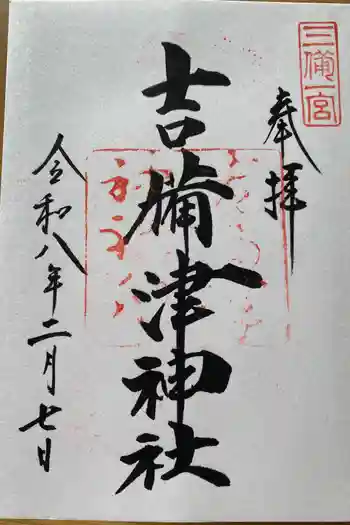 三備一宮
奉拝
吉備津神社
令和八年二月七日